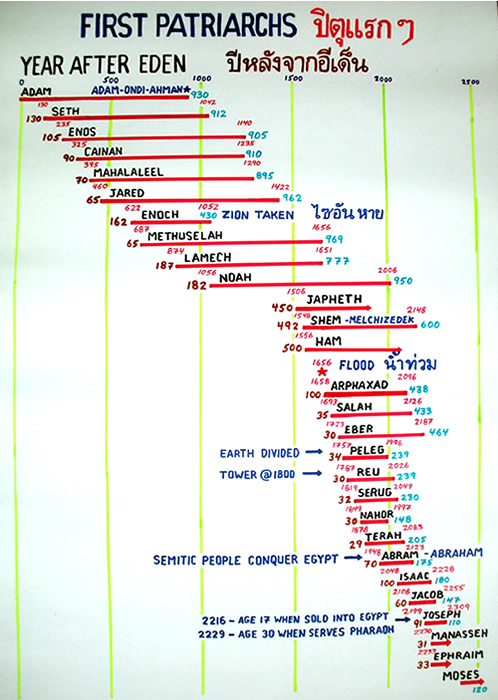 FIRST PATRIARCHS ปิตุแรก ๆ
YEAR AFTER EDEN ปีหลังจากอีเด็น
0 500 1000 1500 2000 2500
ADAM ADAM-ONDI-AHMAN★ 930
130 1042
130 SETH 912
235 1140
105 ENOS 905
325 1235
90 CAINAN 910
395 1290
70 MAHALALEEL 895
460 1422
65 JARED 962
622 1052
162 ENOCH 430 ZION TAKEN ไซอันหาย
687 1656
65 METHUSELAH 969
874 1651
187 LAMECH 777
1056 2006
182 NOAH 950
1506
450 JAPHETH
1548 2148
492 SHEM -MELCHIZEDEK 600
1556
500 HAM
1656 FLOOD น้ำท่วม
★
1658 2096
100 ARPHAXAD 438
1693 2126
35 SALAH 433
1723 2187
30 EBER 464
1757 1996
EARTH DIVIDED → 34 PELEG 239
1787 2026
TOWER @ 1800 → 30 REU 239
1819 2049
32 SERUG 230
1849 1997
30 NAHOR 148
1878 2083
29 TERAH 205
1948 2123
SEMITIC PEOPLE CONQUER EGYPT → 70 ABRAM -ABRAHAM 175
2048 2228
100 ISAAC 180
2108 2255
60 JACOB 147
2199 2309
2216 - AGE 17 WHEN SOLD INTO EGYPT → 91 JOSEPH 110
2229 - AGE 30 WHEN SERVES PHARAOH
2230
31 MANASSEH
33 EPHRAIM
MOSES
120